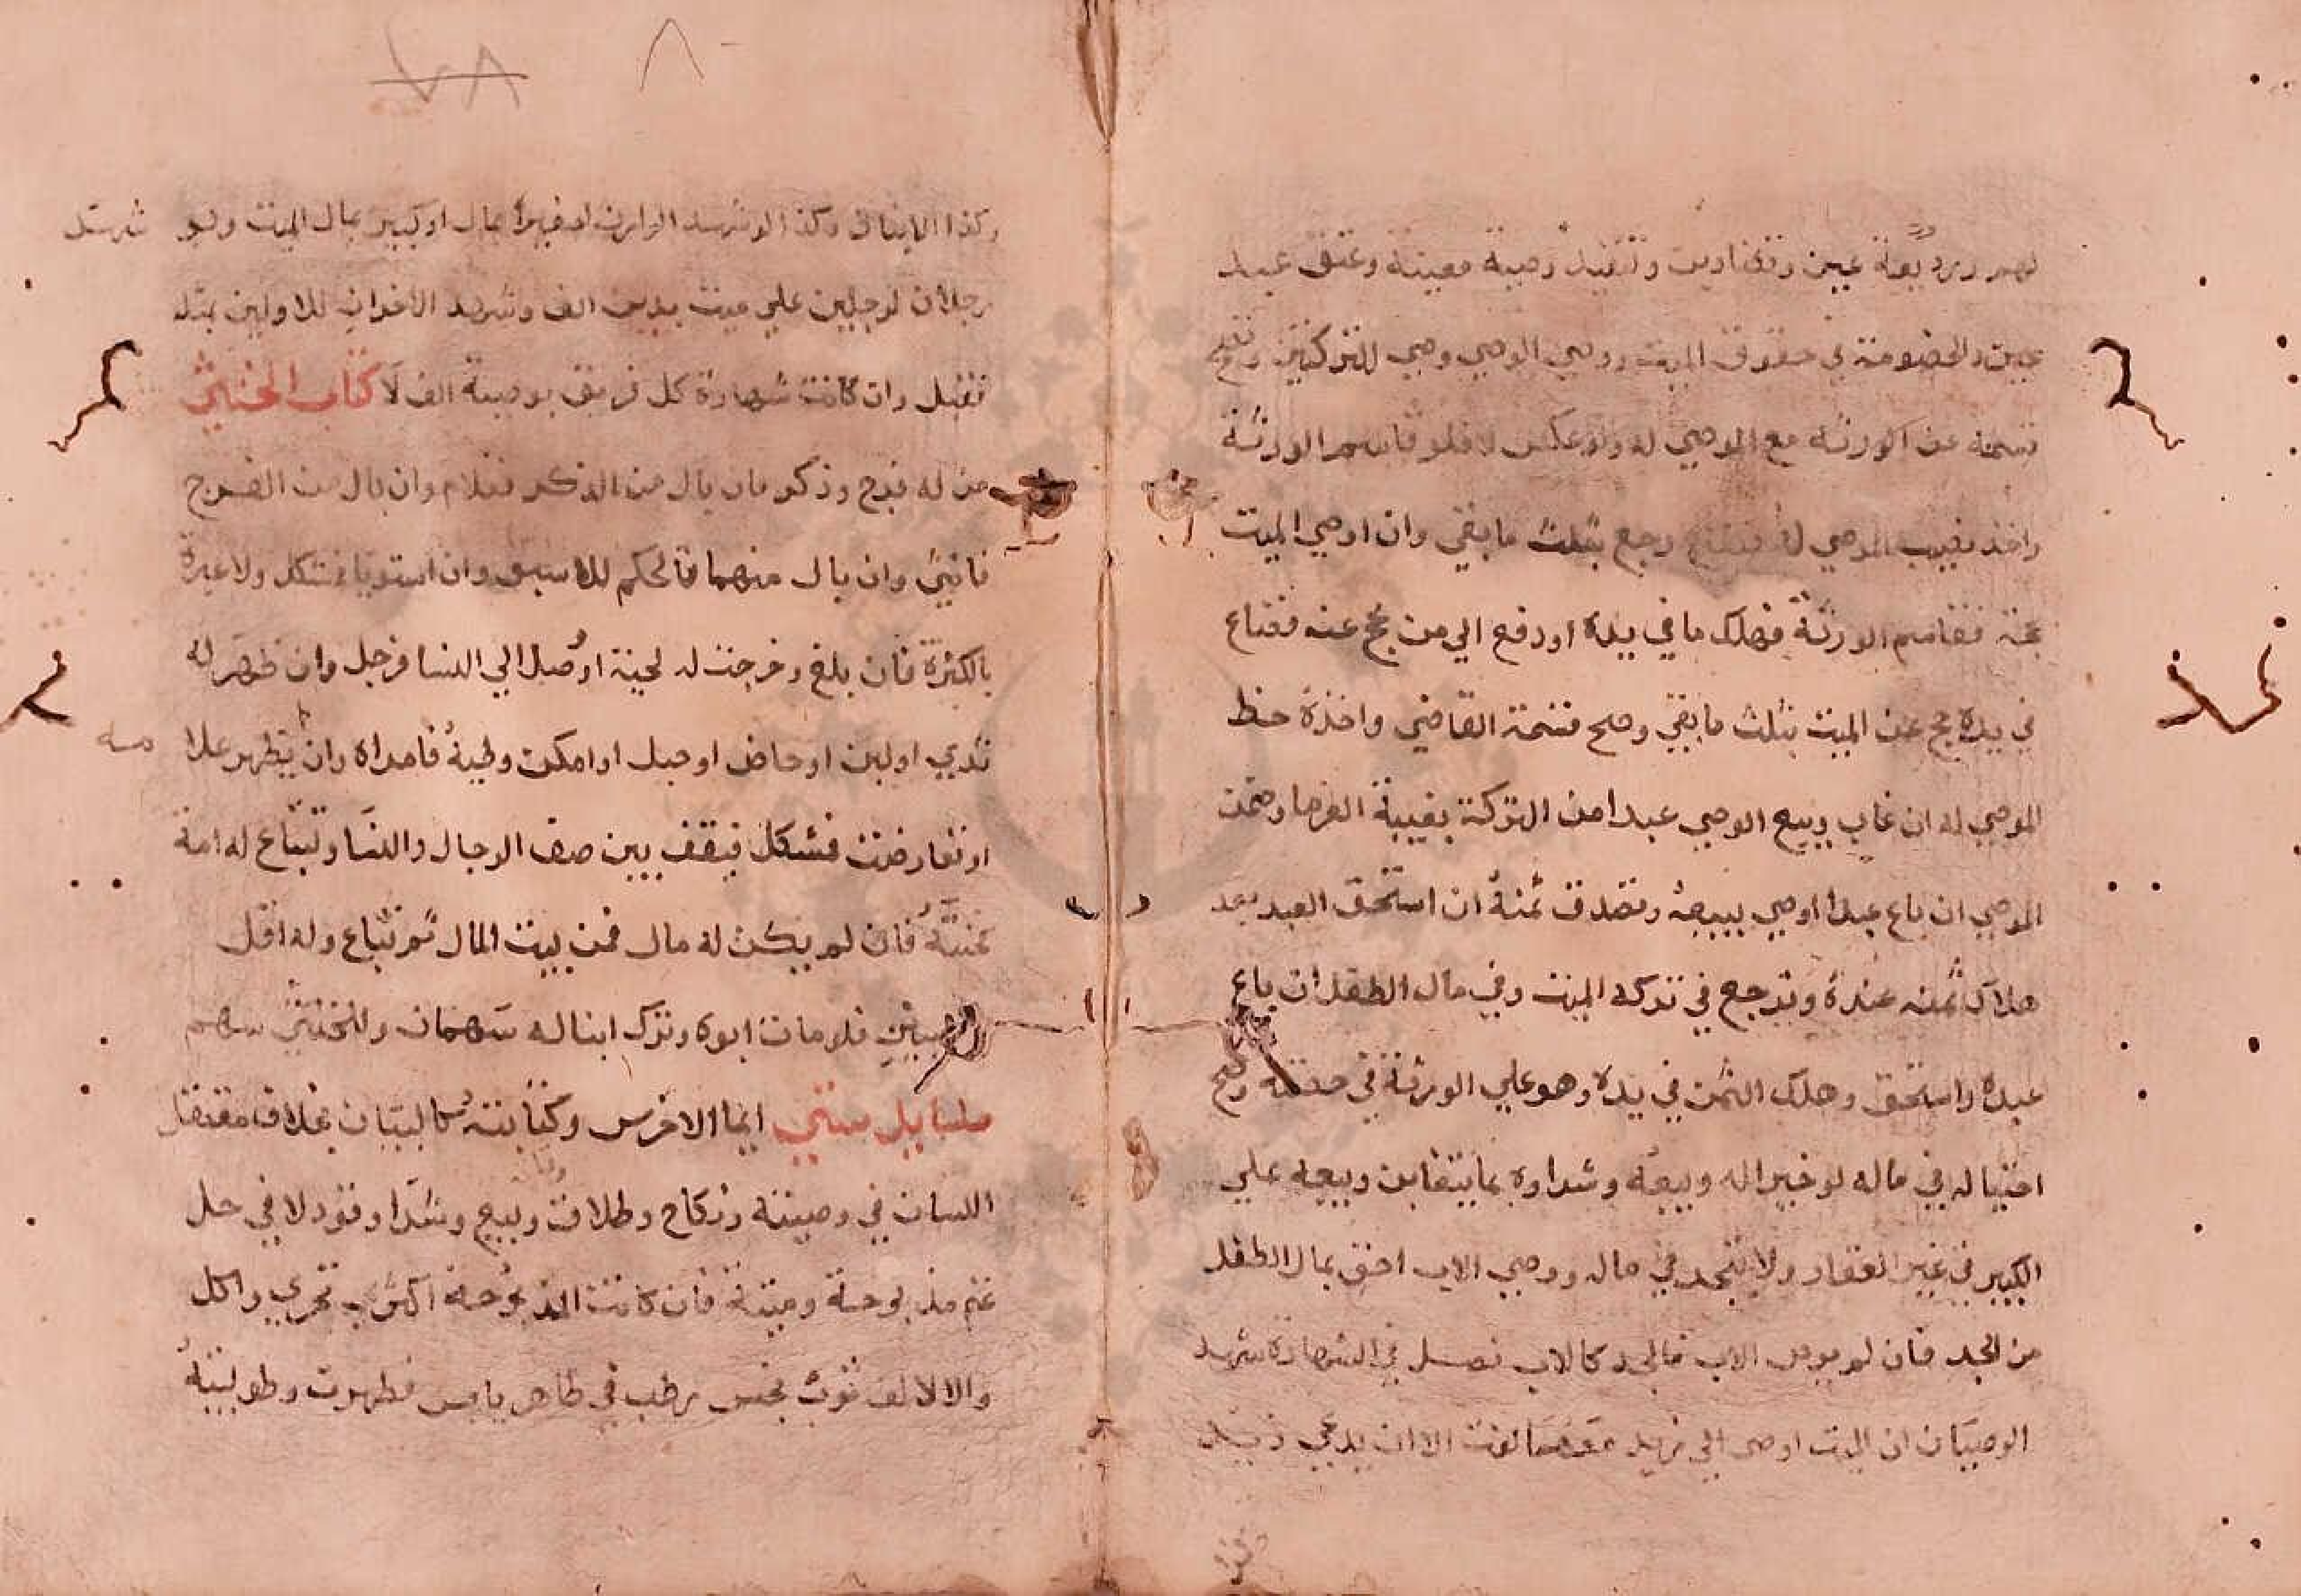 لهم ورد وديعة عين وقضا دين وتنفيذ وصية معينة وعتق عبد
عين والخصومة في حقوق الميت ووصي الوصي وصي للتركتين وتصح
قسمته عن الورثة مع الموصي له ولو عكس لا فلو قاسم الورثة
واخذ نصيب الموصي له فضاع رجع بثلث ما بقي وان اوصي الميت
بحجة فقاسم الورثة فهلك ما في يده او دفع الي من يحج عنه فضاع
في يده يحج عن الميت بثلث ما بقي وصح قسمة القاضي واخذه حظ
الموصي له ان غاب وبيع الوصي عبدا من التركة بغيبة الغرما وضمن
الموصي ان باع عبدا اوصي ببيعه وتصدق ثمنه ان استحق العبد بعد
هلاك ثمنه عنده ويرجع في تركة الميت وفي مال الطفل ان باع
عبده واستحق وهلك الثمن في يده وهو علي الورثة في حصته وصح
احتياله في ماله لو خيرا له وبيعه وشراوه بما يتغابن وبيعه علي
الكبير في غير العقار ولا يتجر في ماله ووصي الاب احق بمال الطفل
من الجد فان لم يوص الاب فالجد كالاب فصل في الشهادة شهد
الوصيان ان الميت اوصي الي زيد معهما لغت الا ان يدعي زيد
وكذا الابنان وكذا لو شهد الوارث لصغير بمال او كبير بمال الميت ولو شهد
رجلان لرجلين علي ميت بدين الف وشهد الاخران للاولين بمثله
تقبل وان كانت شهادة كل فريق بوصية الف لا كتاب الخنثي
من له فرج وذكر فان بال من الذكر فغلام وان بال من الفرج
فانثي وان بال منهما فالحكم للاسبق وان استويا فمشكل ولا عبرة
بالكثرة فان بلغ وخرجت له لحية او وصل الي النسا فرجل وان ظهر له
ثدي او لبن او حاض او حبل او امكن وطيه فامراة وان لم يظهر علا مة
او تعارضت فمشكل فيقف بين صف الرجال والنسا وتبتاع له امة
تختنه فان لم يكن له مال فمن بيت المال ثم تباع وله اقل
النصيبين فلو مات ابوه وترك ابنا له سهمان وللخنثي سهم
مسايل شتي ايما الاخرس وكتابته كالبيان بخلاف معتقل
اللسان في وصيته ونكاح وطلاق وبيع وشرا وقود لا في حد
غنم مذبوحة وميتة فان كانت المذبوحة اكثر تحري واكل
والا لا لف ثوب نجس رطب في طاهر يابس فظهرت رطوبته